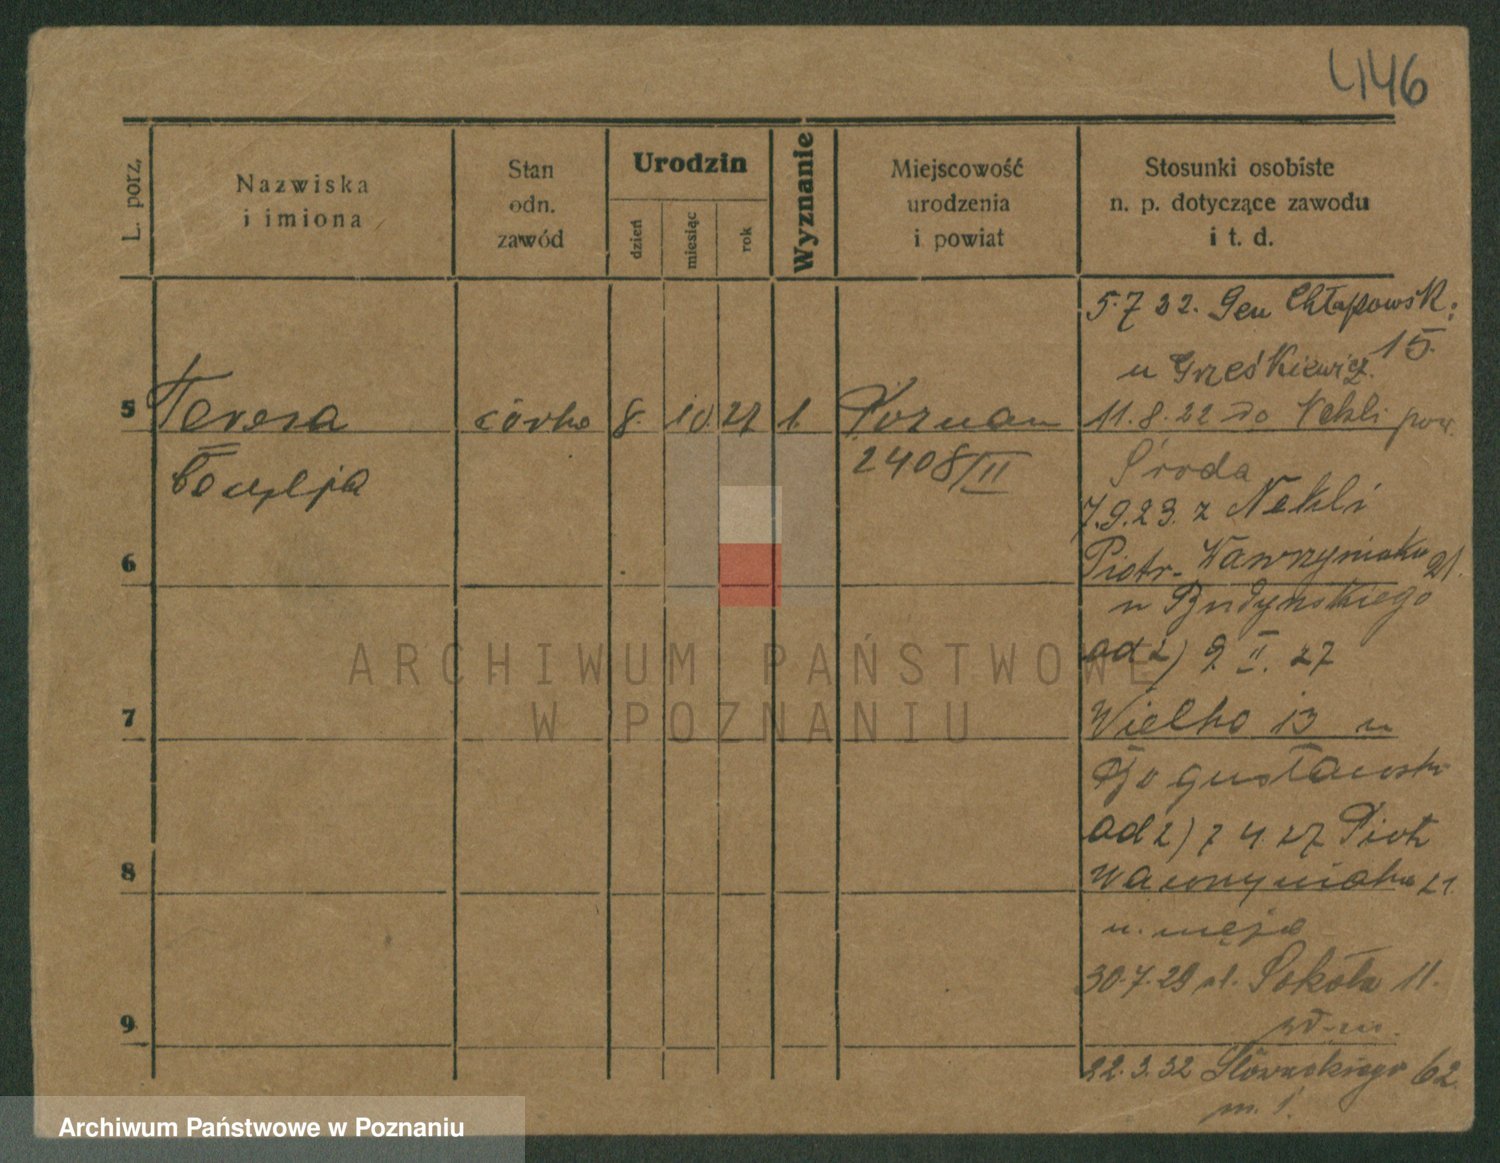 4146
L. porz.
Nazwiska
i imiona
Stan
odn.
zawód
Urodzin
dzień
miesiąc
rok
Wyznanie
Miejscowość
urodzenia
i powiat
Stosunki osobiste
n. p. dotyczące zawodu
i t. d.
5.7 22. Gen Chłapowsk:
15.
u Grześkiewicz.
5
Teresa
córka
8.
10.
27
1.
Poznań
11.8.22 do Nekli pow.
2408/II
Środa
7.9.23. z Nekli
6
Piotr- Wawrzyniaka 21.
u Budyńskiego
ad 2) 9 II. 27
7
Wielka 13 u
Bogusławski
ad 2) 7 4. 27 Piotr
8
Wawrzyniaka 21.
u. męża
30.7.29 ul. Sokoła 11.
9
22.3.32 Słowackiego 62.
m. 1.
ARCHIWUM PAŃSTWOWE
W POZNANIU
Archiwum Państwowe w Poznaniu